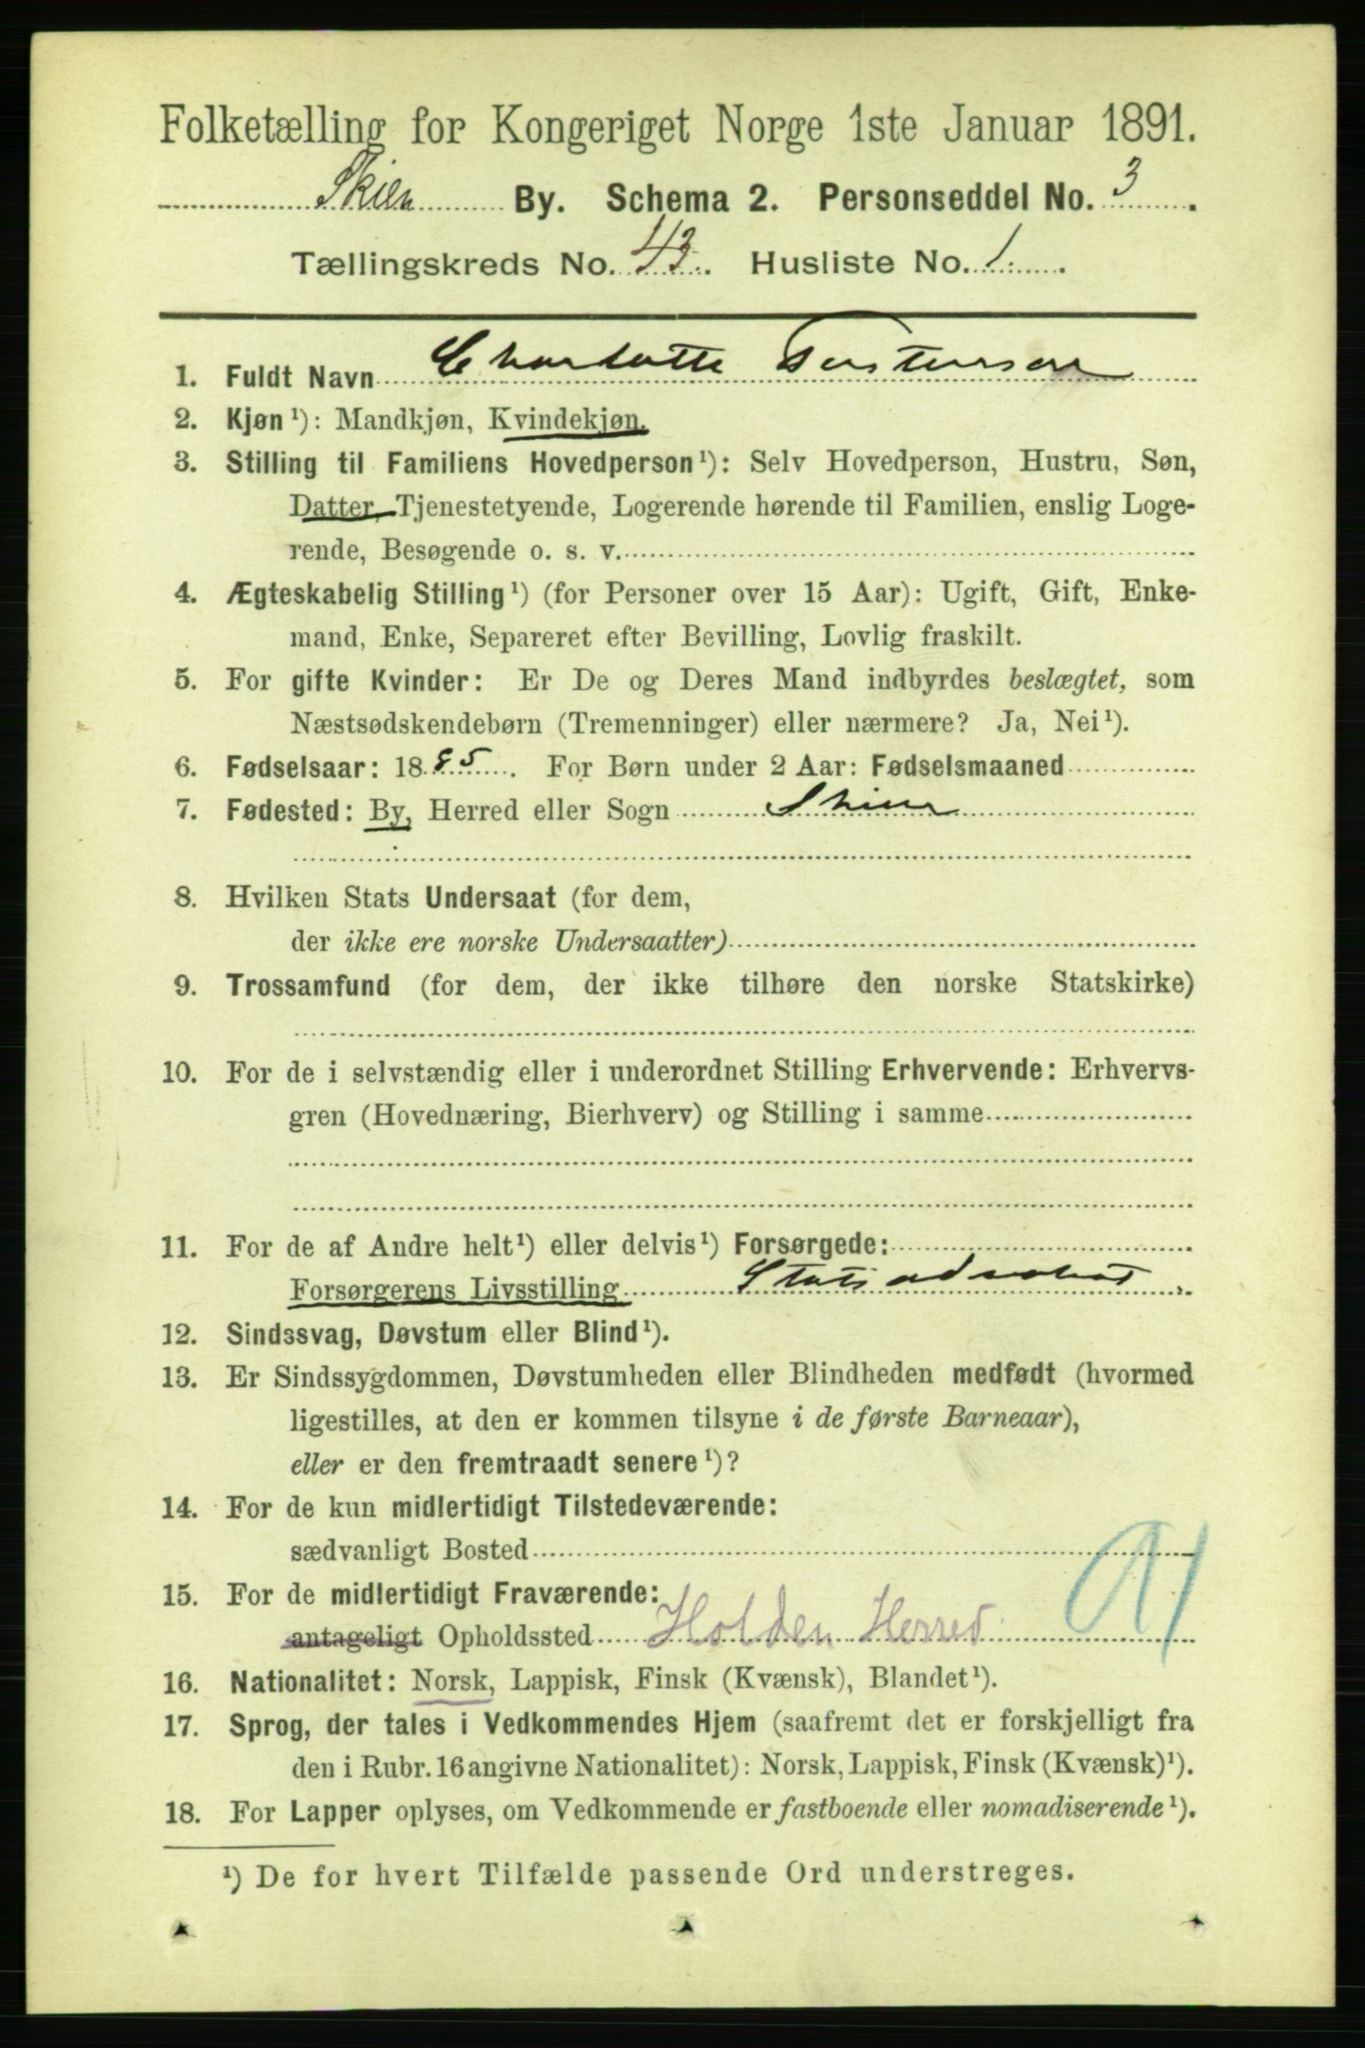 Folketælling for Kongeriget Norge 1ste Januar 1891.
Skien By. Schema 2. Personseddel No. 3.
Tællingskreds No. 43. Husliste No. 1.
1. Fuldt Navn Charlotte Torstensen
2. Kjøn ¹): Mandkjøn, Kvindekjøn.
3. Stilling til Familiens Hovedperson ¹): Selv Hovedperson, Hustru, Søn,
Datter, Tjenestetyende, Logerende hørende til Familien, enslig Loge-
rende, Besøgende o. s. v.
4. Ægteskabelig Stilling ¹) (for Personer over 15 Aar): Ugift, Gift, Enke-
mand, Enke, Separeret efter Bevilling, Lovlig fraskilt.
5. For gifte Kvinder: Er De og Deres Mand indbyrdes beslægtet, som
Næstsødskendebørn (Tremenninger) eller nærmere? Ja, Nei ¹).
6. Fødselsaar: 1885. For Børn under 2 Aar: Fødselsmaaned
7. Fødested: By, Herred eller Sogn Skien
8. Hvilken Stats Undersaat (for dem,
der ikke ere norske Undersaatter)
9. Trossamfund (for dem, der ikke tilhøre den norske Statskirke)
10. For de i selvstændig eller i underordnet Stilling Erhvervende: Erhvervs-
gren (Hovednæring, Bierhverv) og Stilling i samme
11. For de af Andre helt ¹) eller delvis ¹) Forsørgede:
Forsørgerens Livsstilling Statsadvokat.
12. Sindssvag, Døvstum eller Blind ¹).
13. Er Sindssygdommen, Døvstumheden eller Blindheden medfødt (hvormed
ligestilles, at den er kommen tilsyne i de første Barneaar),
eller er den fremtraadt senere ¹)?
14. For de kun midlertidigt Tilstedeværende:
sædvanligt Bosted
15. For de midlertidigt Fraværende:
antageligt Opholdssted Holden Herred.
16. Nationalitet: Norsk, Lappisk, Finsk (Kvænsk), Blandet ¹).
17. Sprog, der tales i Vedkommendes Hjem (saafremt det er forskjelligt fra
den i Rubr. 16 angivne Nationalitet): Norsk, Lappisk, Finsk (Kvænsk) ¹).
18. For Lapper oplyses, om Vedkommende er fastboende eller nomadiserende ¹).
¹) De for hvert Tilfælde passende Ord understreges.